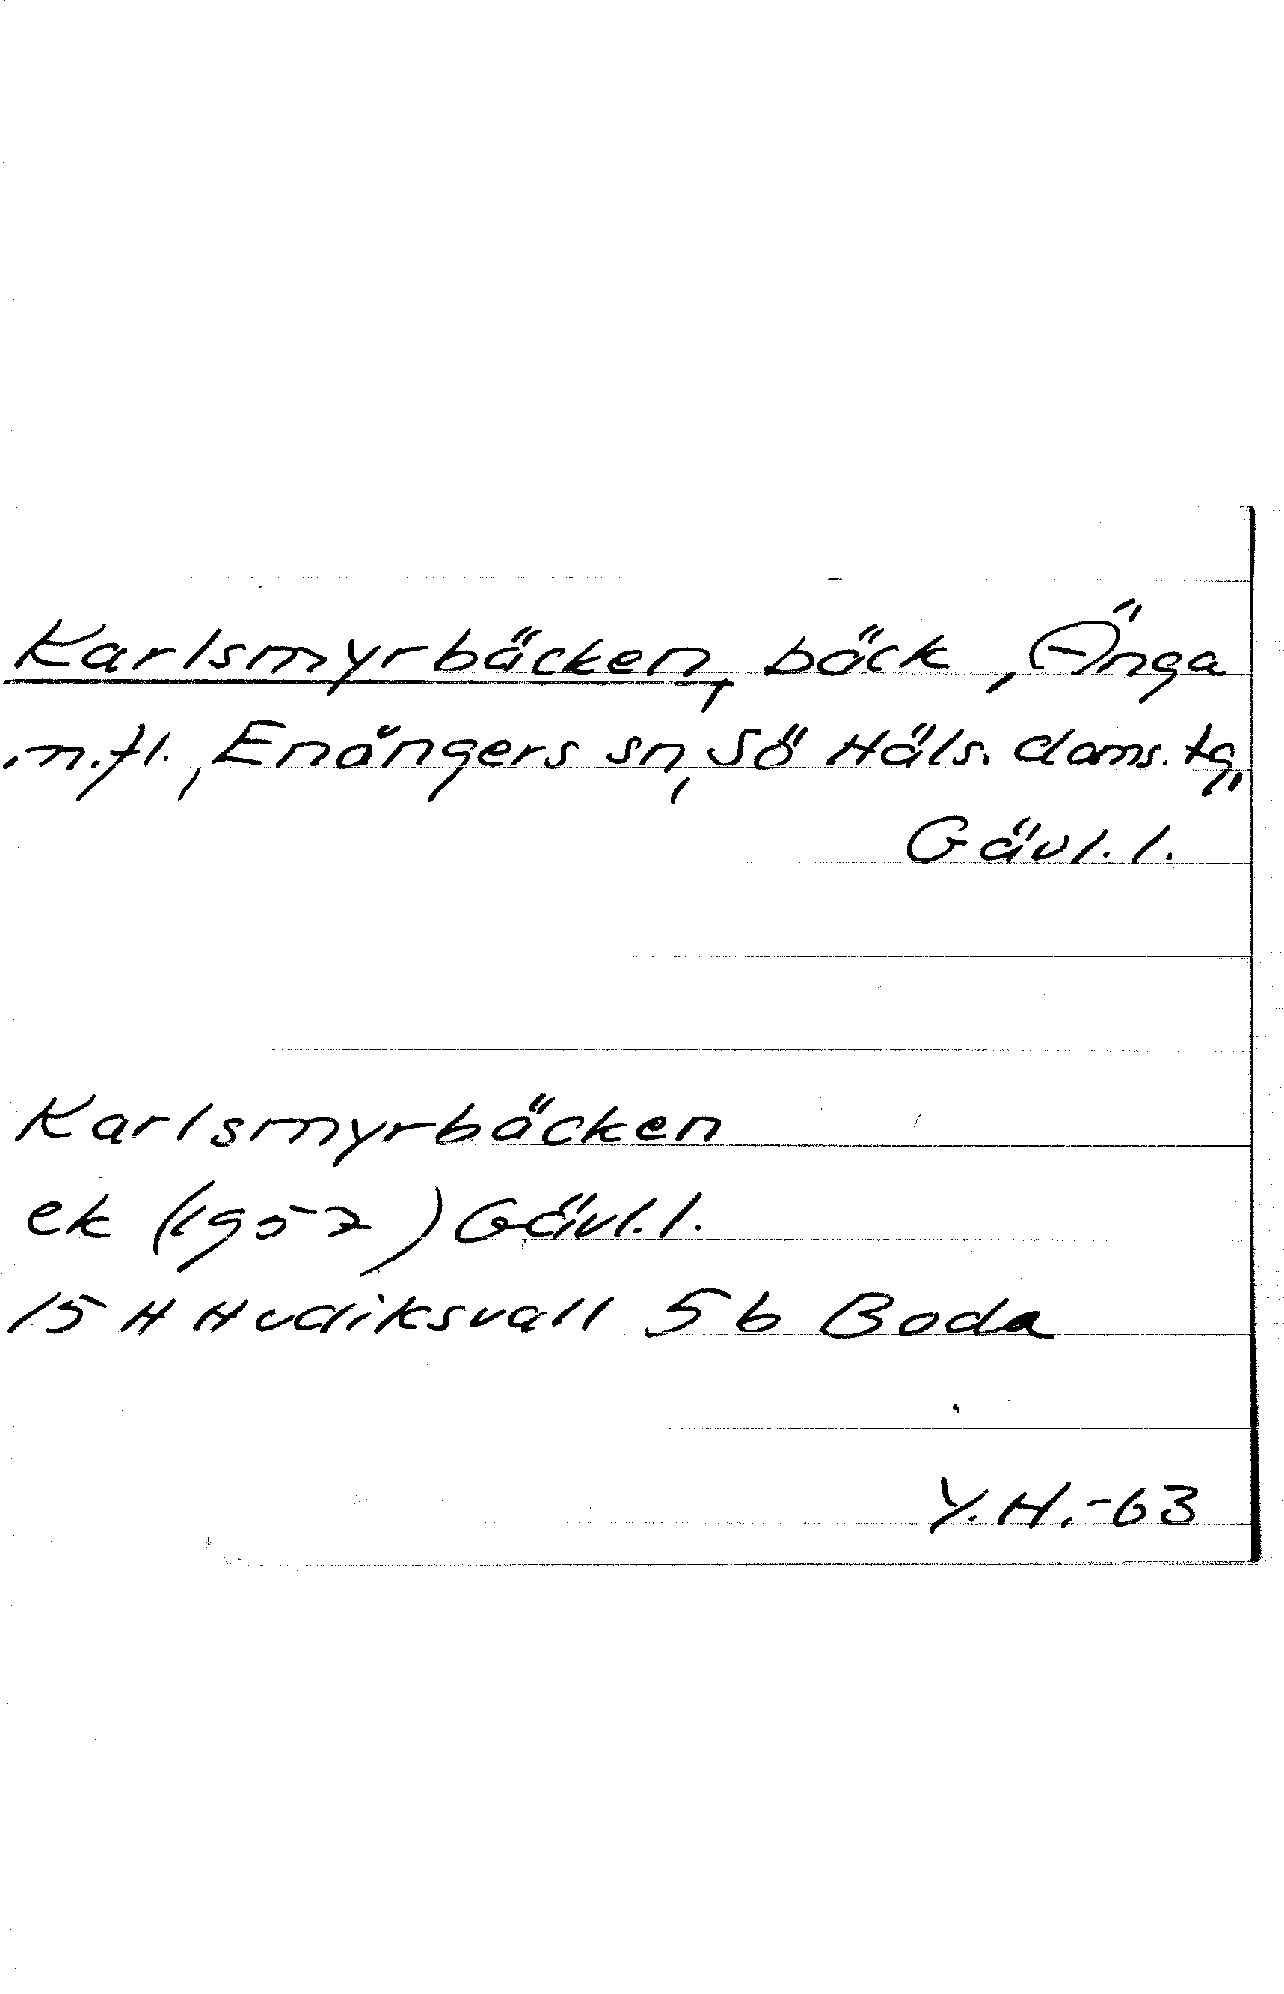 Karlsmyrbäcken, bäck, Änga
m.fl., Enångers sn, Sö Häls. doms. tg,
Gävl. l.
Karlsmyrbäcken
ek (1957) Gävl. l.
15 H Hudiksvall 5 b Boda
Y.H.-63